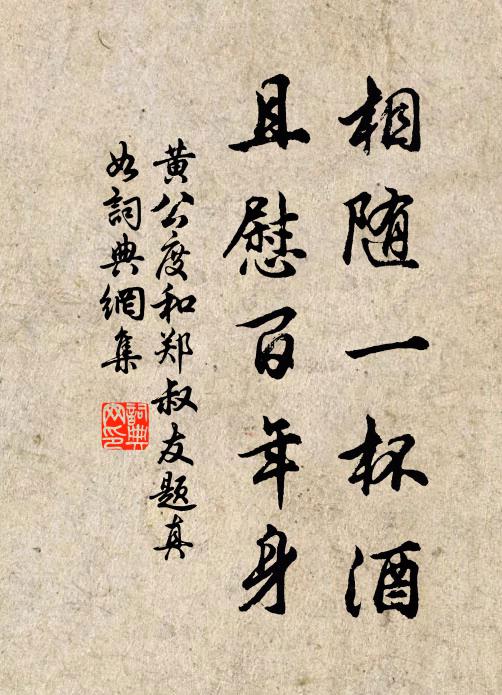 相随一杯酒
且慰百年身
黄公度和郑叔友题真
如詞典網集
詞典網印